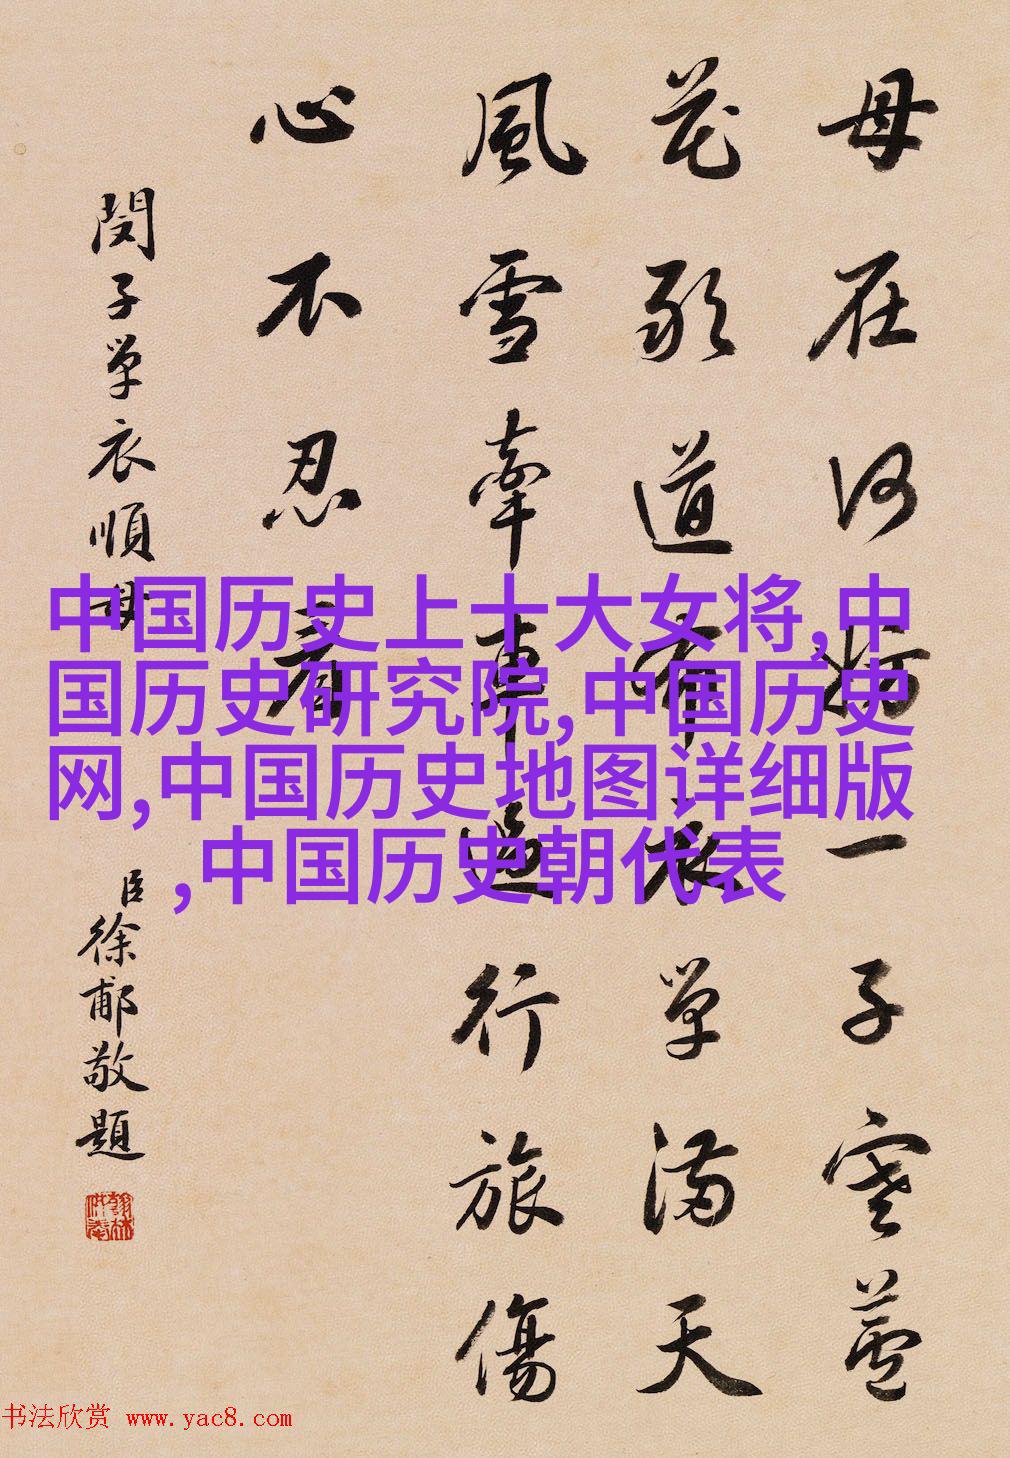 母在何妨一子寒蘆
花敢道布衣單滿天
風雪牽車過行旅傷
心不忍看
閔子單衣順母
臣徐郙敬題
翰林供奉
中国历史上十大女将,中
国历史研究院,中国历史
网,中国历史地图详细版
,中国历史朝代表
书法欣赏 www.yac8.com